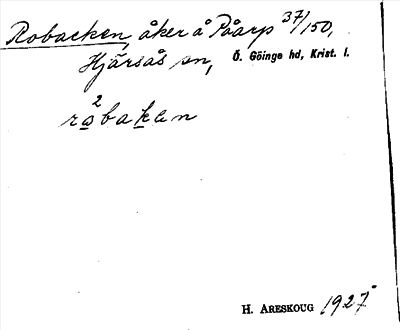 Robacken, åker å Påarp 37/150,
Hjärsås sn, Ö. Göinge hd, Krist. l.
2
robaken
H. ARESKOUG 1927